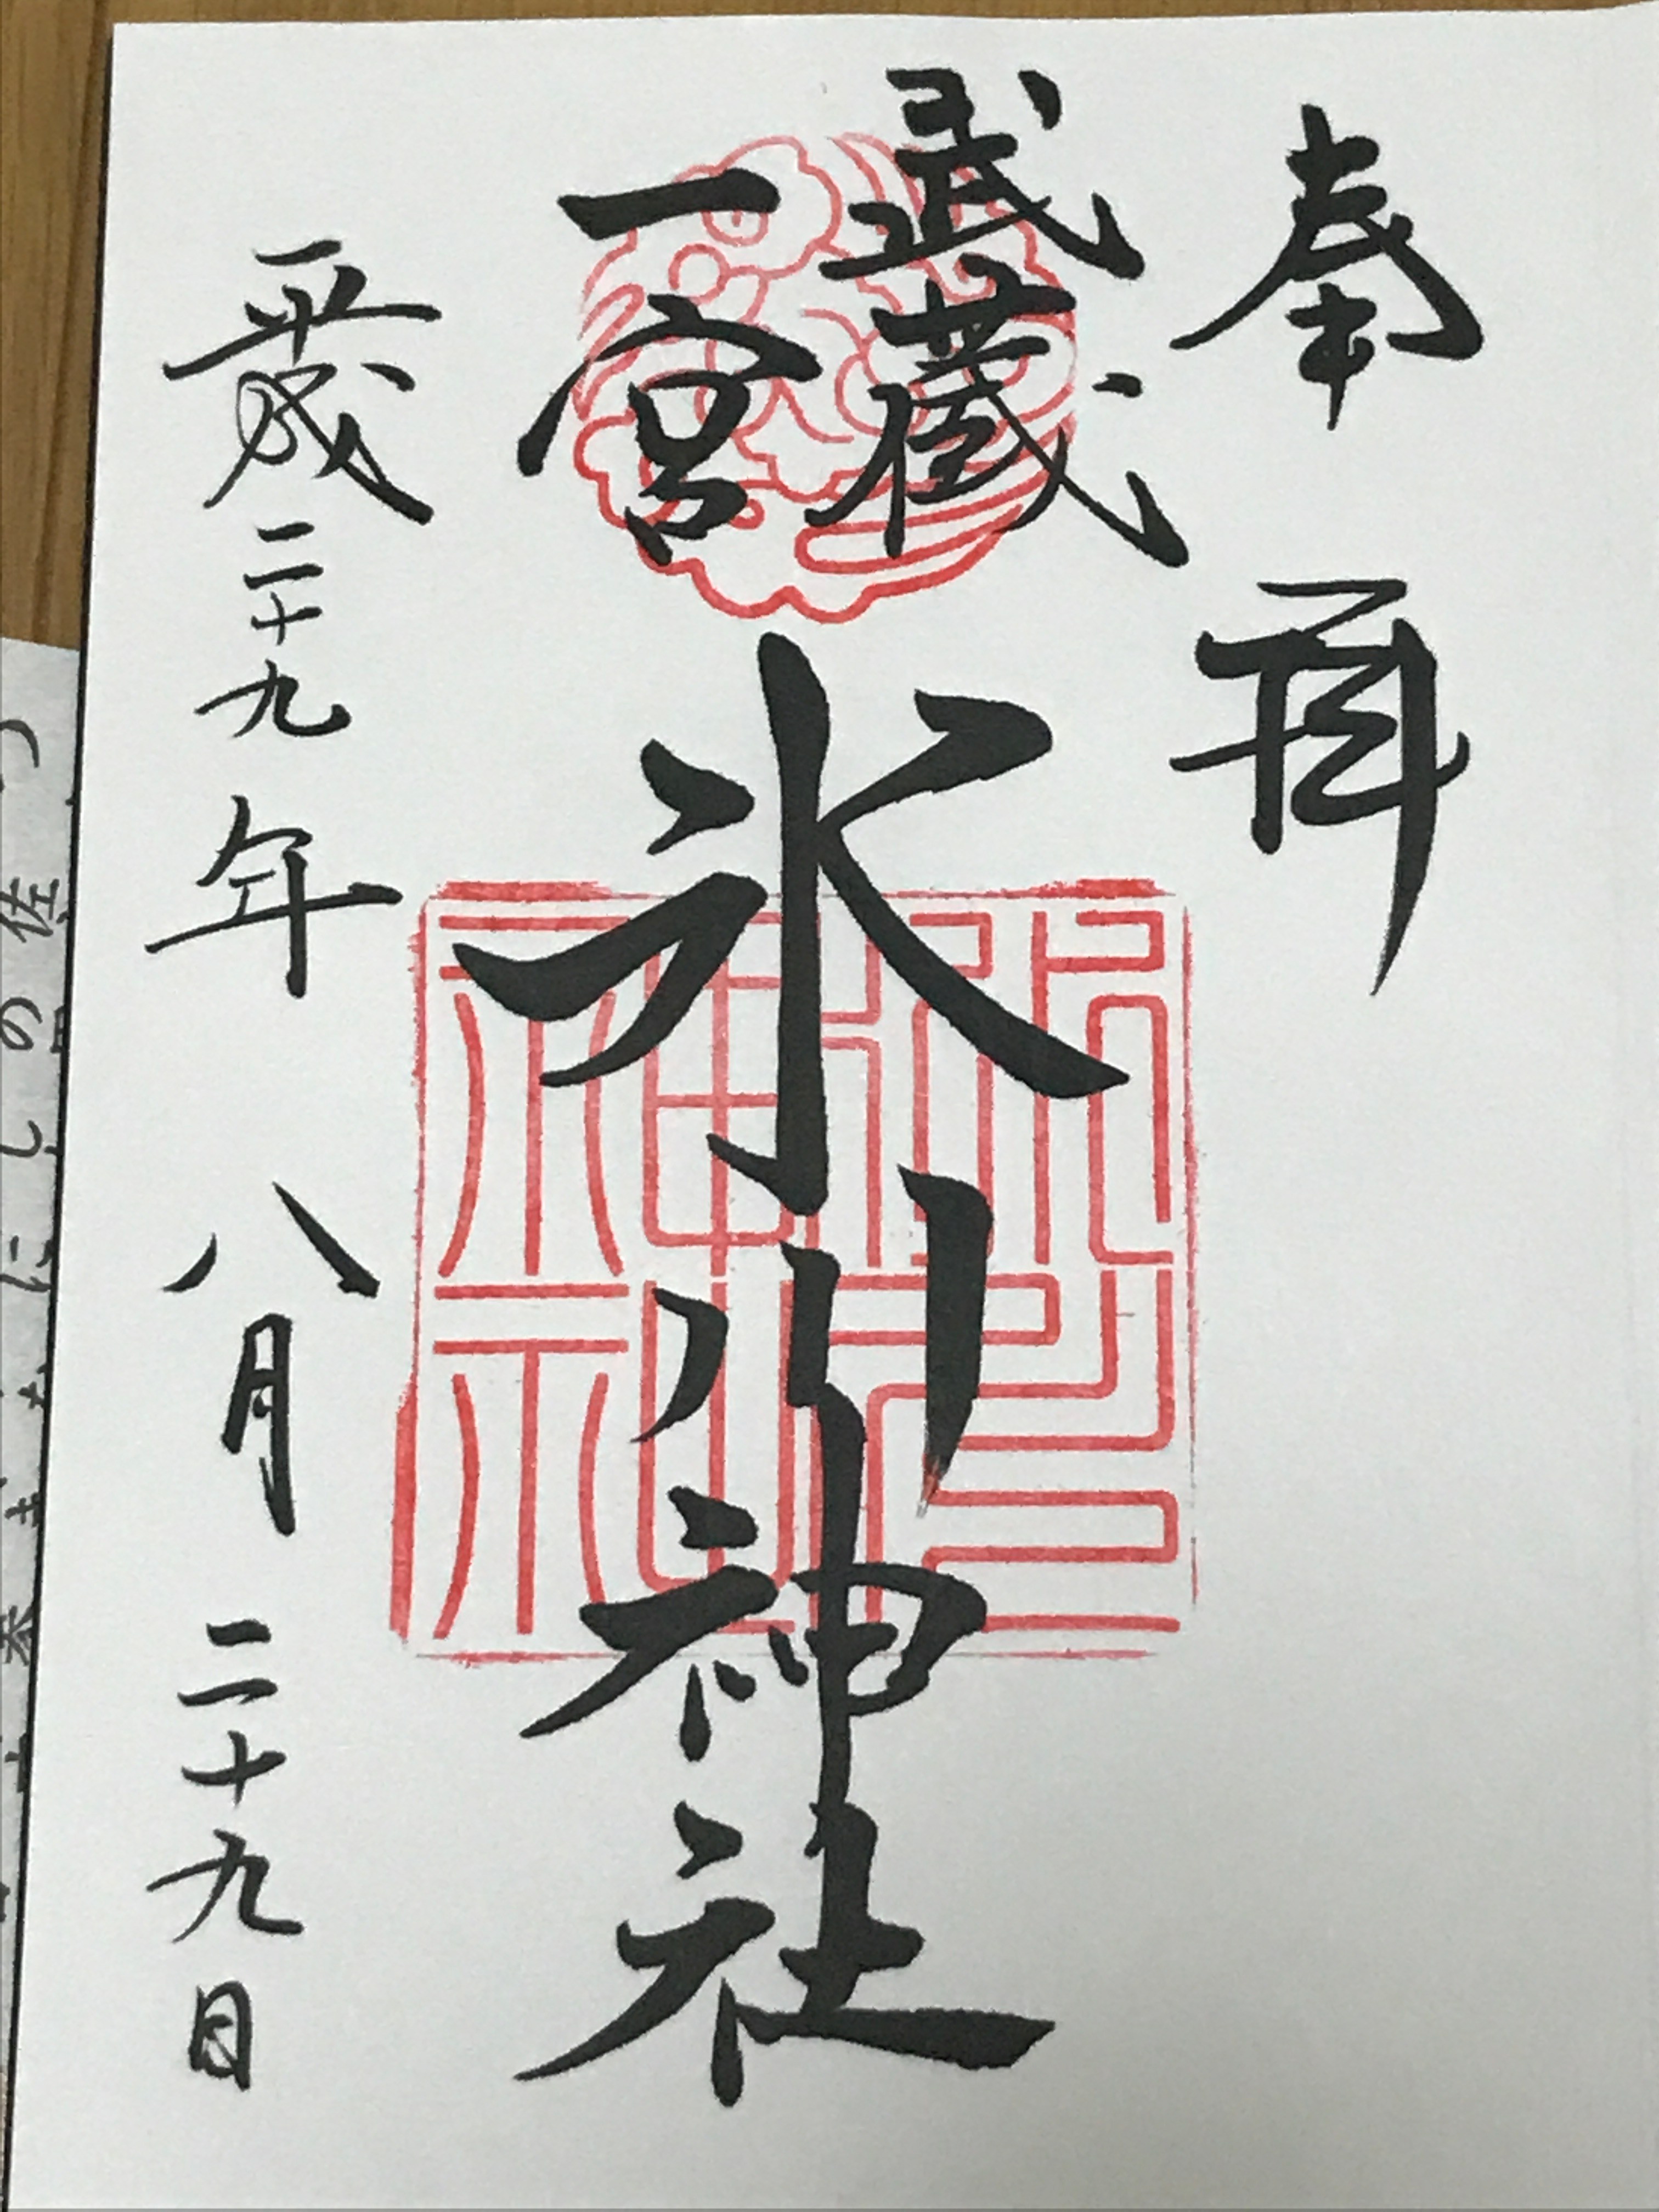 奉拝
武蔵
一宮
氷川神社
平成二十九年八月二十九日